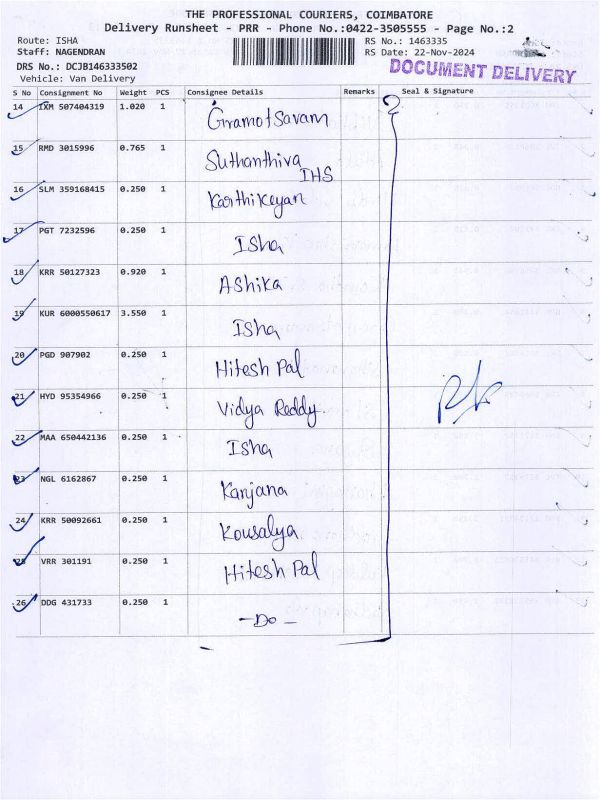 THE PROFESSIONAL COURIERS, COIMBATORE
Delivery Runsheet - PRR - Phone No.:0422-3505555 - Page No.:2
Route: ISHA
Staff: NAGENDRAN
DRS No.: DCJB146333502
Vehicle: Van Delivery
RS No.: 1463335
RS Date: 22-Nov-2024
DOCUMENT DELIVERY
S No Consignment No Weight PCS Consignee Details Remarks Seal & Signature
14 IXM 507404319 1.020 1 Gramotsavam
15 RMD 3015996 0.765 1 Suthanthiva IHS
16 SLM 359168415 0.250 1 Karthikeyan
17 PGT 7232596 0.250 1 Isha
18 KRR 50127323 0.920 1 Ashika
19 KUR 6000550617 3.550 1 Isha
20 PGD 907902 0.250 1 Hitesh Pal
21 HYD 95354966 0.250 1 Vidya Reddy
22 MAA 650442136 0.250 1 Isha
23 NGL 6162867 0.250 1 Kanjana
24 KRR 50092661 0.250 1 Kousalya
25 VRR 301191 0.250 1 Hitesh Pal
26 DDG 431733 0.250 1 -Do-